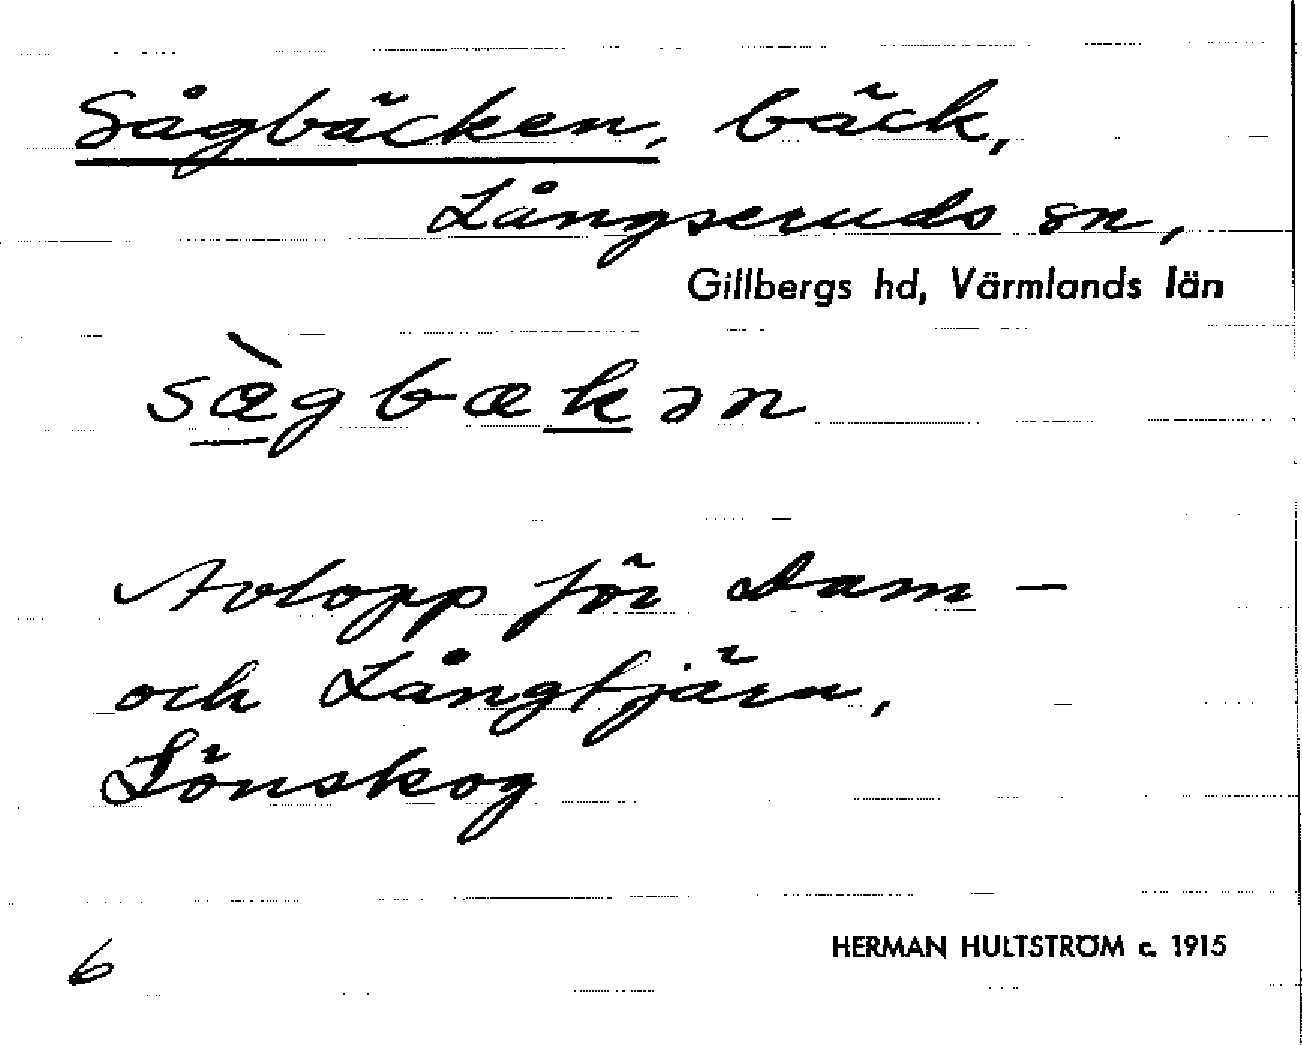 Sågbäcken, bäck,
Långseruds sn,
Gillbergs hd, Värmlands län
sæ̀gbækən
Avlopp för Dam-
och Långtjärn,
Lönskog
6
HERMAN HULTSTRÖM c. 1915